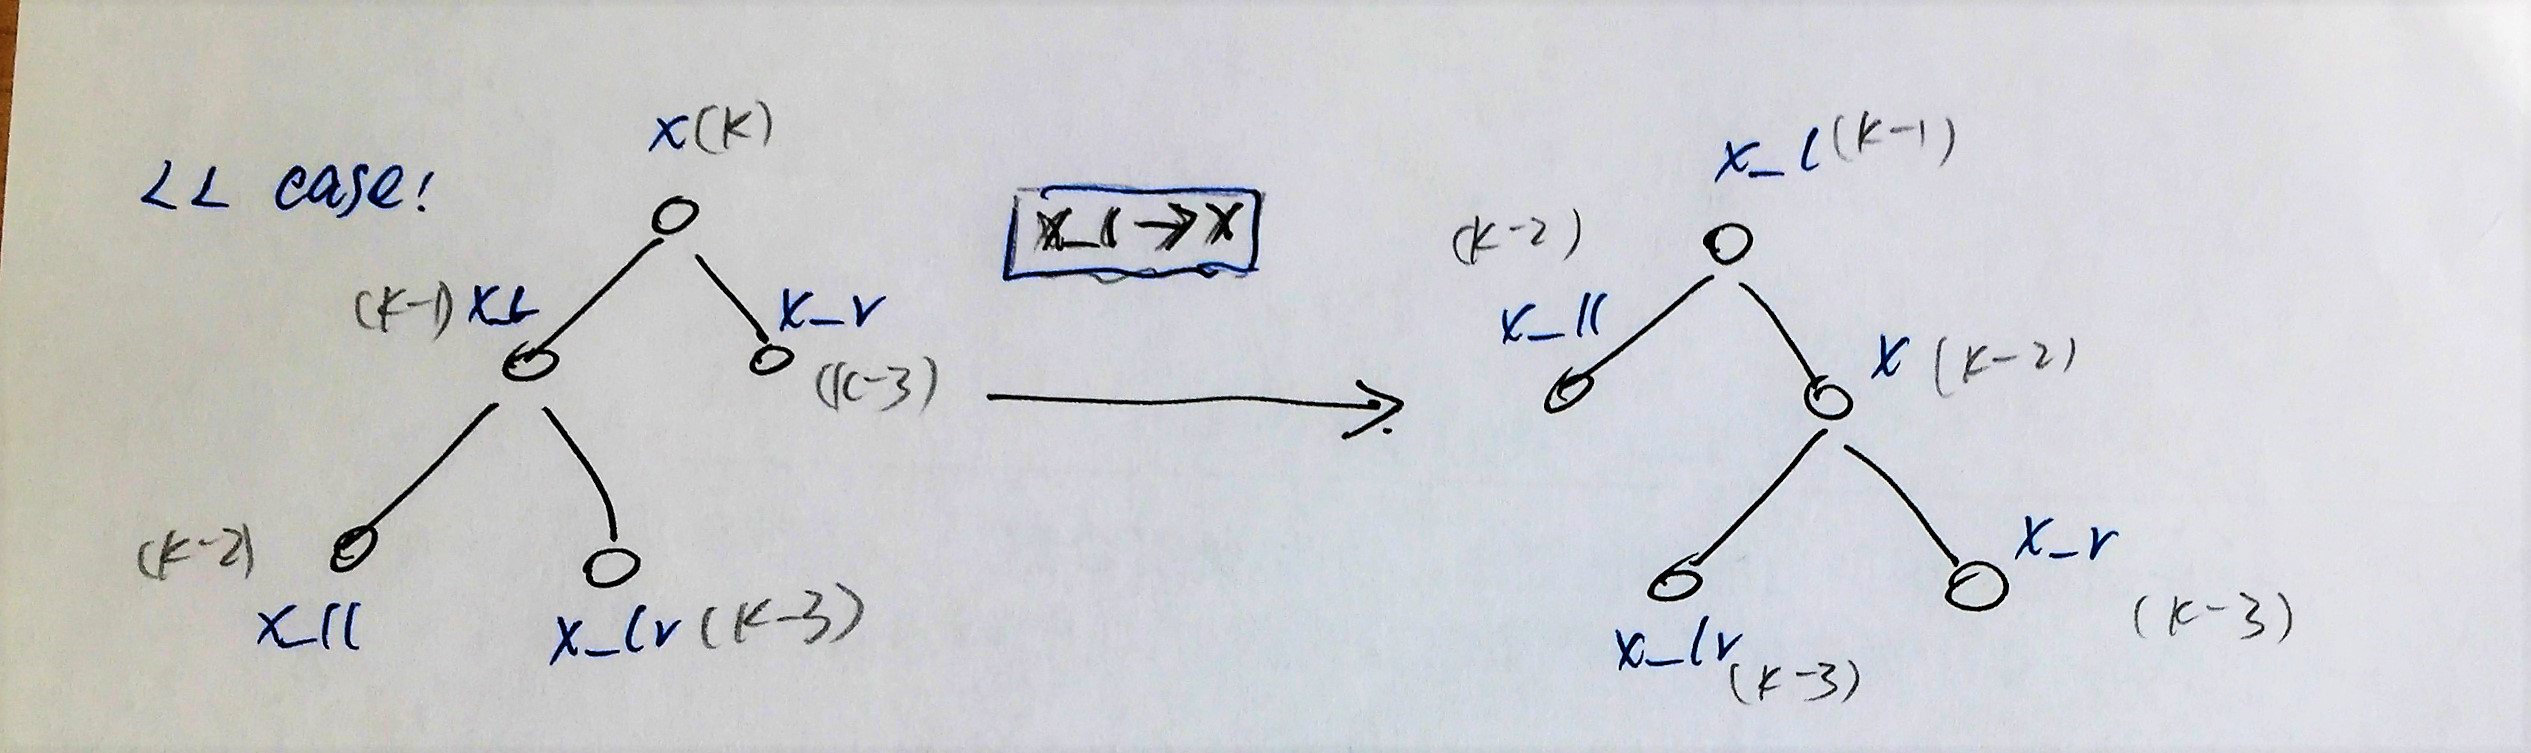 LL case!
x(k)
(k-1) x_L
x_r
(k-3)
(k-2)
x_ll
x_lr (k-3)
x_l→x
x_l (k-1)
(k-2)
x_ll
x (k-2)
x_r
(k-3)
x_lr
(k-3)